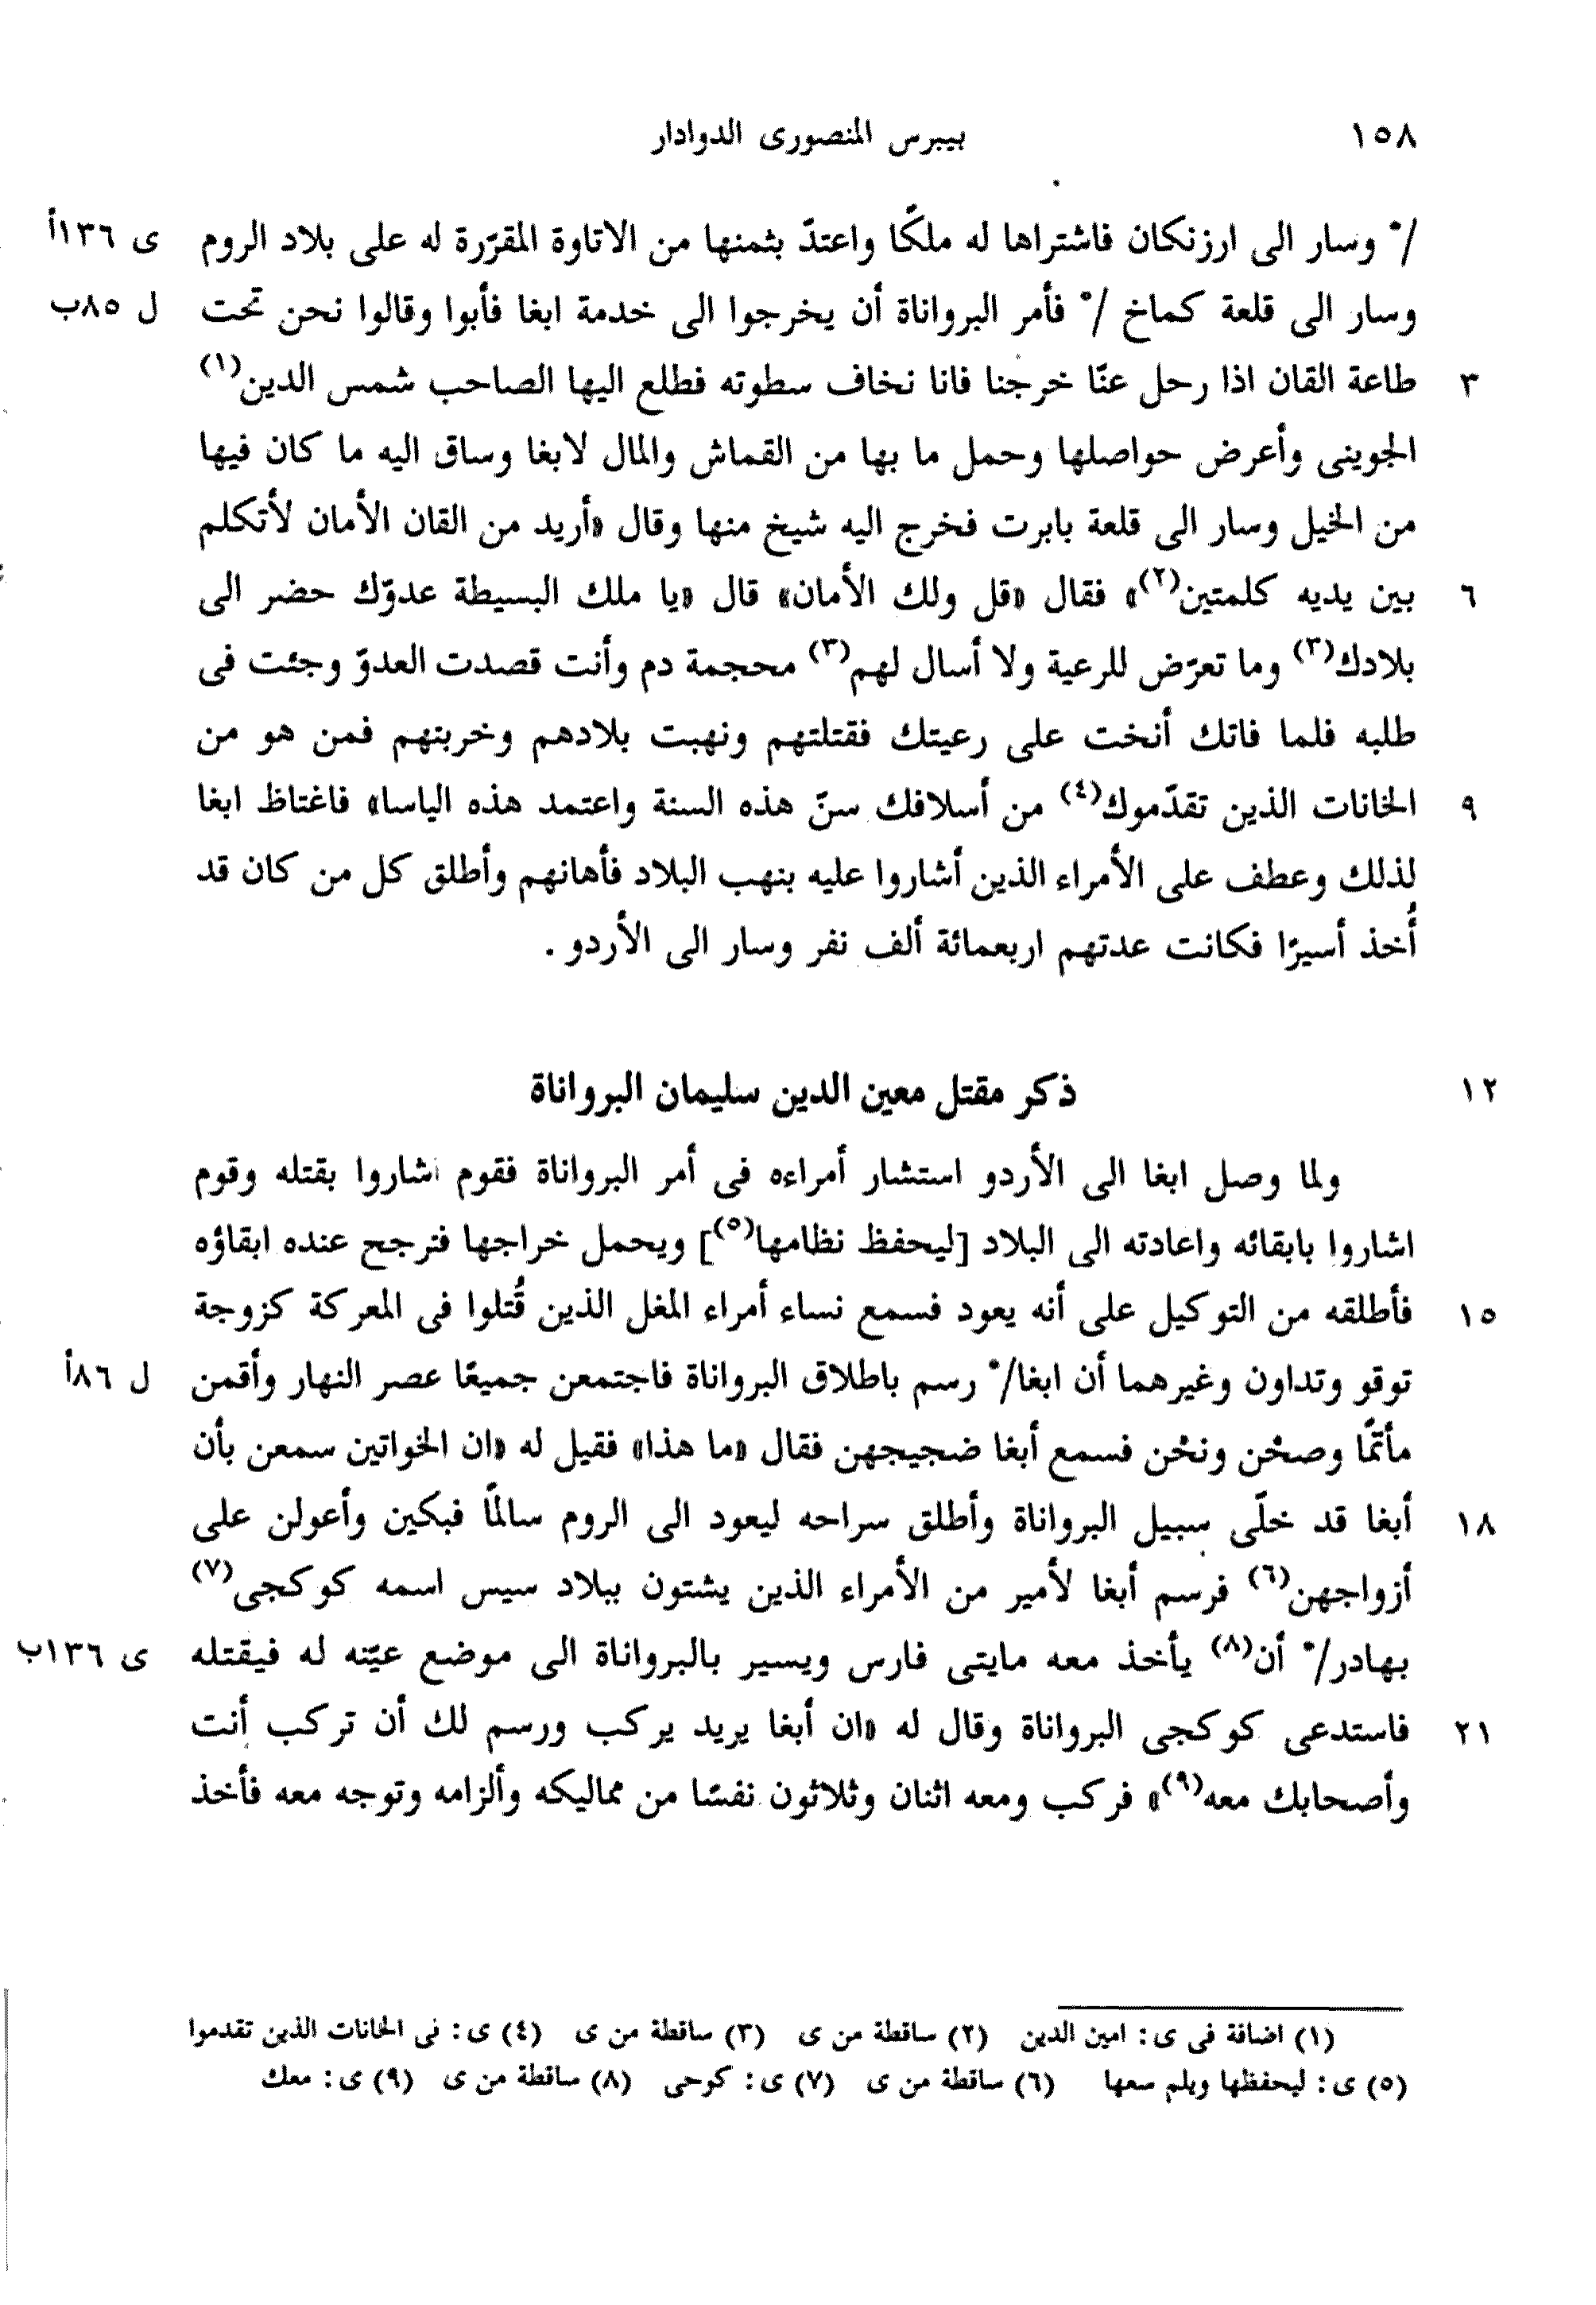 ١٥٨ بيبرس المنصورى الدوادار
/° وسار الى ارزنكان فاشتراها له ملكًا واعتدّ بثمنها من الاتاوة المقرّرة له على بلاد الروم ى ١٣٦أ
وسار الى قلعة كماخ /° فأمر البرواناة أن يخرجوا الى خدمة ابغا فأبوا وقالوا نحن تحت ل ٨٥ب
٣ طاعة القان اذا رحل عنّا خرجنا فانا نخاف سطوته فطلع اليها الصاحب شمس الدين(١)
الجوينى وأعرض حواصلها وحمل ما بها من القماش والمال لابغا وساق اليه ما كان فيها
من الخيل وسار الى قلعة بابرت فخرج اليه شيخ منها وقال «أريد من القان الأمان لأتكلم
٦ بين يديه كلمتين(٢)» فقال «قل ولك الأمان» قال «يا ملك البسيطة عدوّك حضر الى
بلادك(٣) وما تعرّض للرعية ولا أسال لهم(٣) محجمة دم وأنت قصدت العدوّ وجئت فى
طلبه فلما فاتك أنخت على رعيتك فقتلتهم ونهبت بلادهم وخربتهم فمن هو من
٩ الخانات الذين تقدّموك(٤) من أسلافك سنّ هذه السنة واعتمد هذه الياسا» فاغتاظ ابغا
لذلك وعطف على الأمراء الذين أشاروا عليه بنهب البلاد فأهانهم وأطلق كل من كان قد
أُخذ أسيرًا فكانت عدتهم اربعمائة ألف نفر وسار الى الأردو .
١٢ ذكر مقتل معين الدين سليمان البرواناة
ولما وصل ابغا الى الأردو استشار أمراءه فى أمر البرواناة فقوم اشاروا بقتله وقوم
اشاروا بابقائه واعادته الى البلاد [ليحفظ نظامها(٥)] ويحمل خراجها فترجح عنده ابقاؤه
١٥ فأطلقه من التوكيل على أنه يعود فسمع نساء أمراء المغل الذين قُتلوا فى المعركة كزوجة
توقو وتداون وغيرهما أن ابغا/° رسم باطلاق البرواناة فاجتمعن جميعًا عصر النهار وأقمن ل ٨٦أ
مأتمًا وصحْن ونحْن فسمع أبغا ضجيجهن فقال «ما هذا» فقيل له «ان الخواتين سمعن بأن
١٨ أبغا قد خلّى سبيل البرواناة وأطلق سراحه ليعود الى الروم سالمًا فبكين وأعولن على
أزواجهن(٦) فرسم أبغا لأمير من الأمراء الذين يشتون ببلاد سيس اسمه كوكجى(٧)
بهادر/° أن(٨) يأخذ معه مايتى فارس ويسير بالبرواناة الى موضع عيّنه له فيقتله ى ١٣٦ب
٢١ فاستدعى كوكجى البرواناة وقال له «ان أبغا يريد يركب ورسم لك أن تركب أنت
وأصحابك معه(٩)» فركب ومعه اثنان وثلاثون نفسًا من مماليكه وألزامه وتوجه معه فأخذ
(١) اضافة فى ى: امين الدين (٢) ساقطة من ى (٣) ساقطة من ى (٤) ى: فى الخانات الذين تقدموا
(٥) ى: ليحفظها ويلم سعها (٦) ساقطة من ى (٧) ى: كوحى (٨) ساقطة من ى (٩) ى: معك